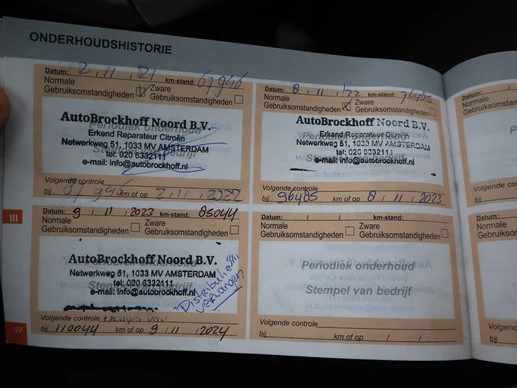 ONDERHOUDSHISTORIE
Datum: 2 , 11 , 21 km-stand: 67946
Normale Gebruiksomstandigheden Zware Gebruiksomstandigheden
AutoBrockhoff Noord B.V.
Periodiek onderhoud
Erkend Reparateur Citroën
Netwerkweg 51, 1033 MV AMSTERDAM
tel: 020 6332111
Stempel van bedrijf
e-mail: info@autobrockhoff.nl
Volgende controle
bij km of op 2 , 11 , 2022
Datum: 8 , 11 , '22 km-stand: 76485
Normale Gebruiksomstandigheden Zware Gebruiksomstandigheden
AutoBrockhoff Noord B.V.
Periodiek onderhoud
Erkend Reparateur Citroën
Netwerkweg 51, 1033 MV AMSTERDAM
tel: 020 6332111
Stempel van bedrijf
e-mail: info@autobrockhoff.nl
Volgende controle
bij 96485 km of op 8 , 11 , 2023
III
Datum: 9 , 11 , 2023 km-stand: 85044
Normale Gebruiksomstandigheden Zware Gebruiksomstandigheden
AutoBrockhoff Noord B.V.
Netwerkweg 51, 1033 MV AMSTERDAM
tel: 020 6332111
Stempel
e-mail: info@autobrockhoff.nl
vervangen
Volgende controle
bij 110044 km of op 9 , 11 , 2024
Datum: / / km-stand:
Normale Gebruiksomstandigheden Zware Gebruiksomstandigheden
Periodiek onderhoud
Stempel van bedrijf
Volgende controle
bij km of op / /
22